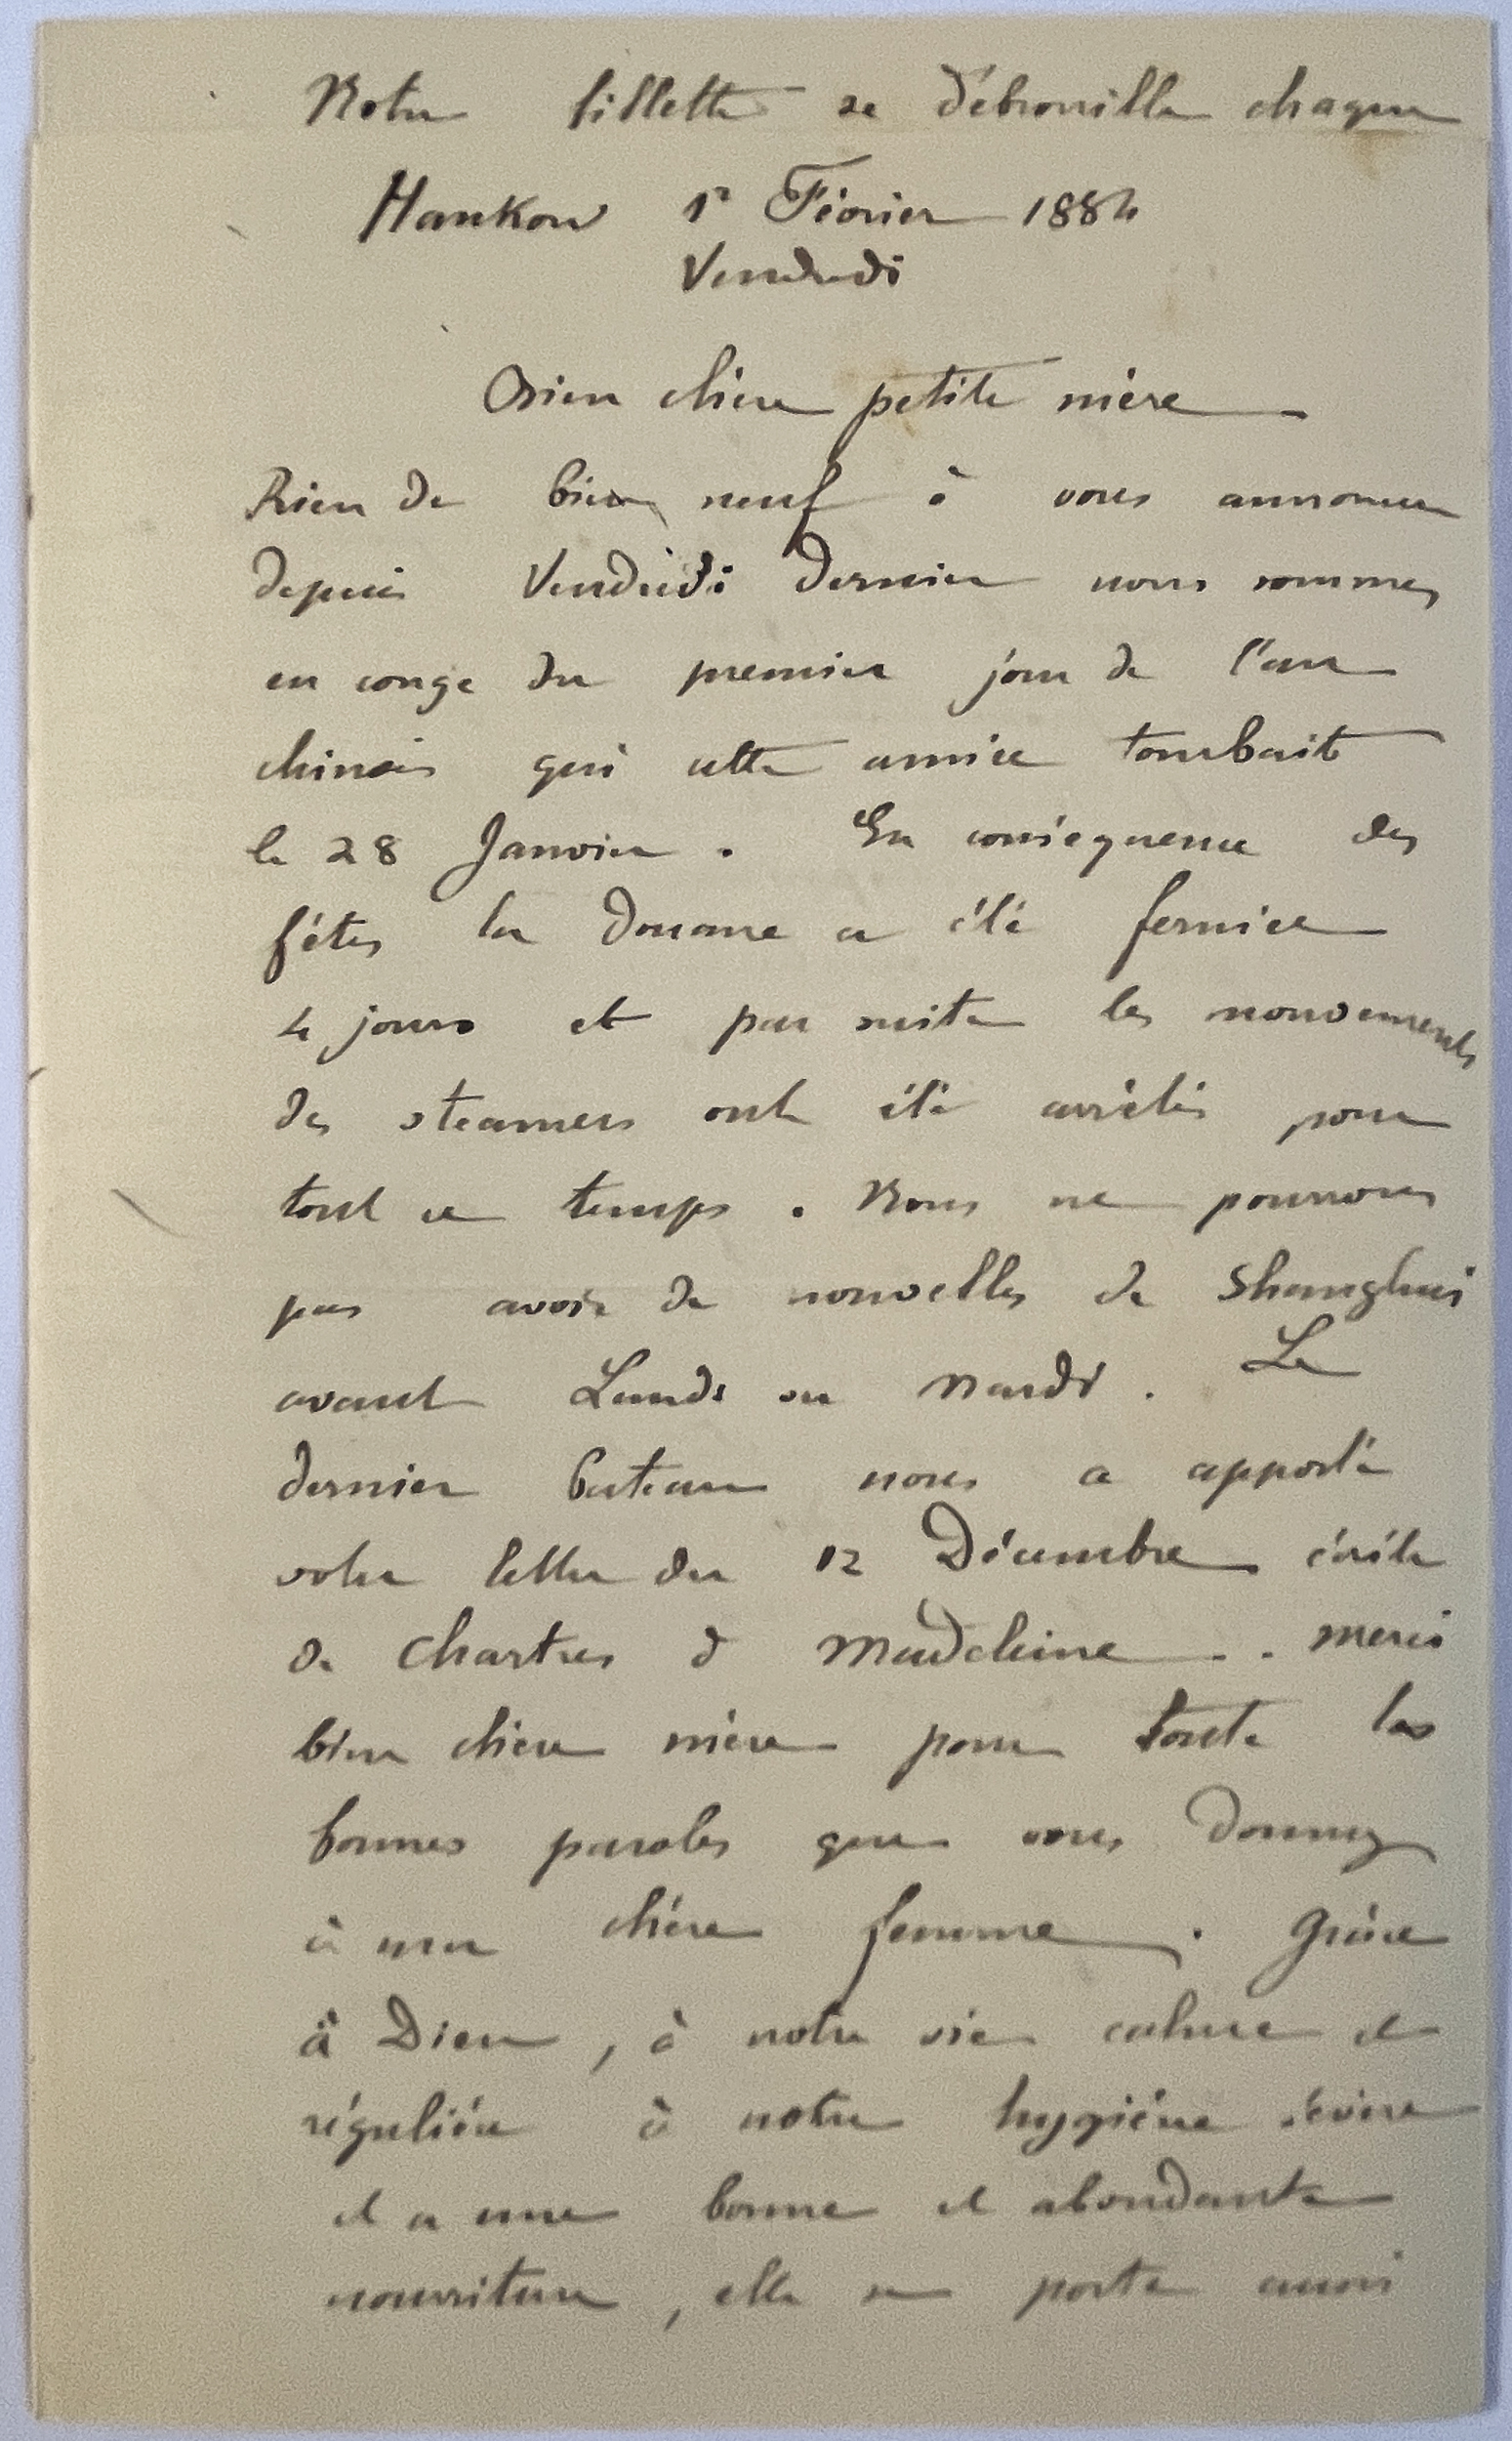 Notre fillette se débrouille chaque
Hankow 1er Février 1884
Vendredi
Bien chère petite mère
Rien de bien neuf à vous annoncer
depuis Vendredi dernier nous sommes
en congé du premier jour de l'an
chinois qui cette année tombait
le 28 Janvier. En conséquence des
fêtes la Douane a été fermée
4 jours et par suite les mouvements
des steamers ont été arrêtés pour
tout ce temps. Nous ne pourrons
pas avoir de nouvelles de Shanghai
avant Lundi ou Mardi. Le
dernier bateau nous a apporté
votre lettre du 12 Décembre écrite
de Chartres à Madeleine .. merci
bien chère mère pour toute les
bonnes paroles que vous donnez
à ma chère femme. Grâce
à Dieu, à notre vie calme et
régulière à notre hygiène sévère
et a une bonne et abondante
nourriture, elle se porte aussi